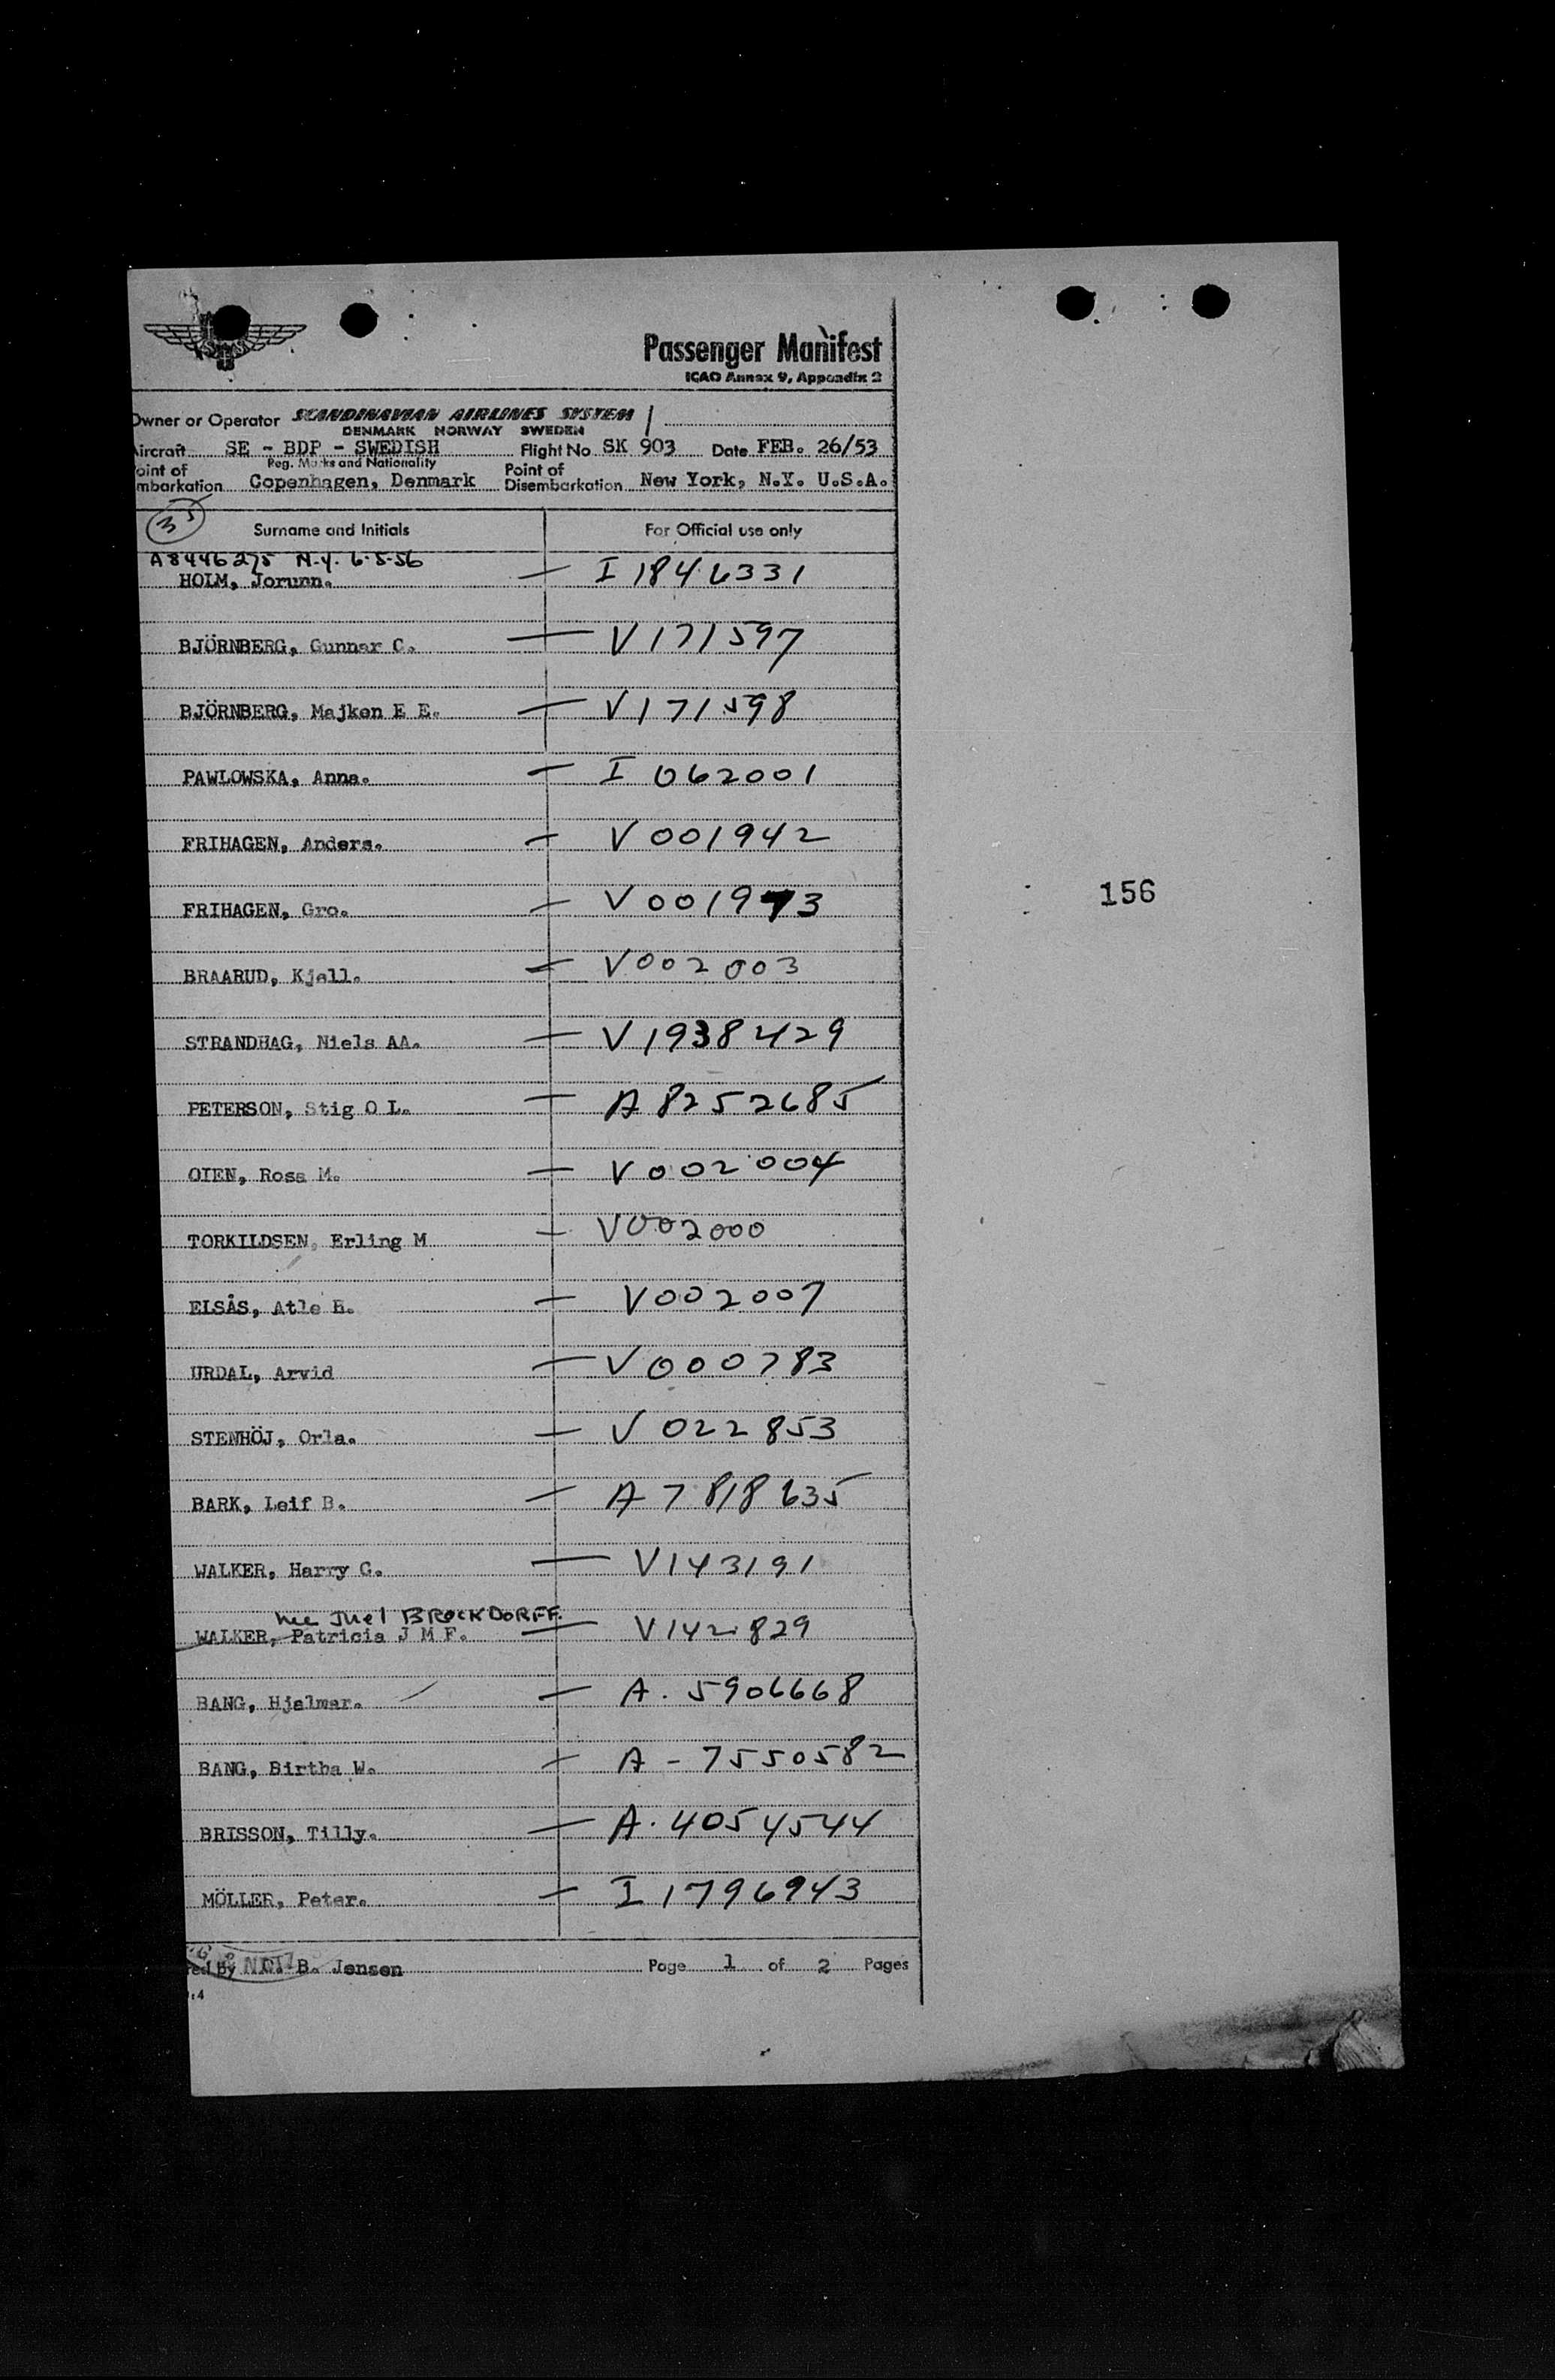 Passenger Manifest
ICAO Annex 9, Appendix 2
Owner or Operator SCANDINAVIAN AIRLINES SYSTEM
DENMARK NORWAY SWEDEN
Aircraft SE - BDP - SWEDISH Flight No SK 903 Date FEB. 26/53
Reg. Marks and Nationality
Point of Embarkation Copenhagen, Denmark Point of Disembarkation New York, N.Y. U.S.A.
35
Surname and Initials For Official use only
A8446275 N.Y. 6-5-56
HOLM, Jorunn. — I 1846331
BJÖRNBERG, Gunnar C. — V171597
BJÖRNBERG, Majken E E. — V171598
PAWLOWSKA, Anna. — I 062001
FRIHAGEN, Anders. — V001942
FRIHAGEN, Gro. — V001943
156
BRAARUD, Kjell. — V002003
STRANDHAG, Niels AA. — V1938429
PETERSON, Stig O L. — A8252685
OIEN, Rosa M. — V002004
TORKILDSEN, Erling M — V002000
ELSÅS, Atle — V002007
URDAL, Arvid — V000783
STENHÖJ, Orla. — V022853
BARK, Leif B. — A7818635
WALKER, Harry C. — V143191
nee Juel BROCKDORFF.
WALKER, Patricia J M F. — V142829
BANG, Hjalmar. — A. 5906668
BANG, Birtha W. — A-7550582
BRISSON, Tilly. — A. 4054544
MÖLLER, Peter. — I 1796943
ed by B. Jensen Page 1 of 2 Pages